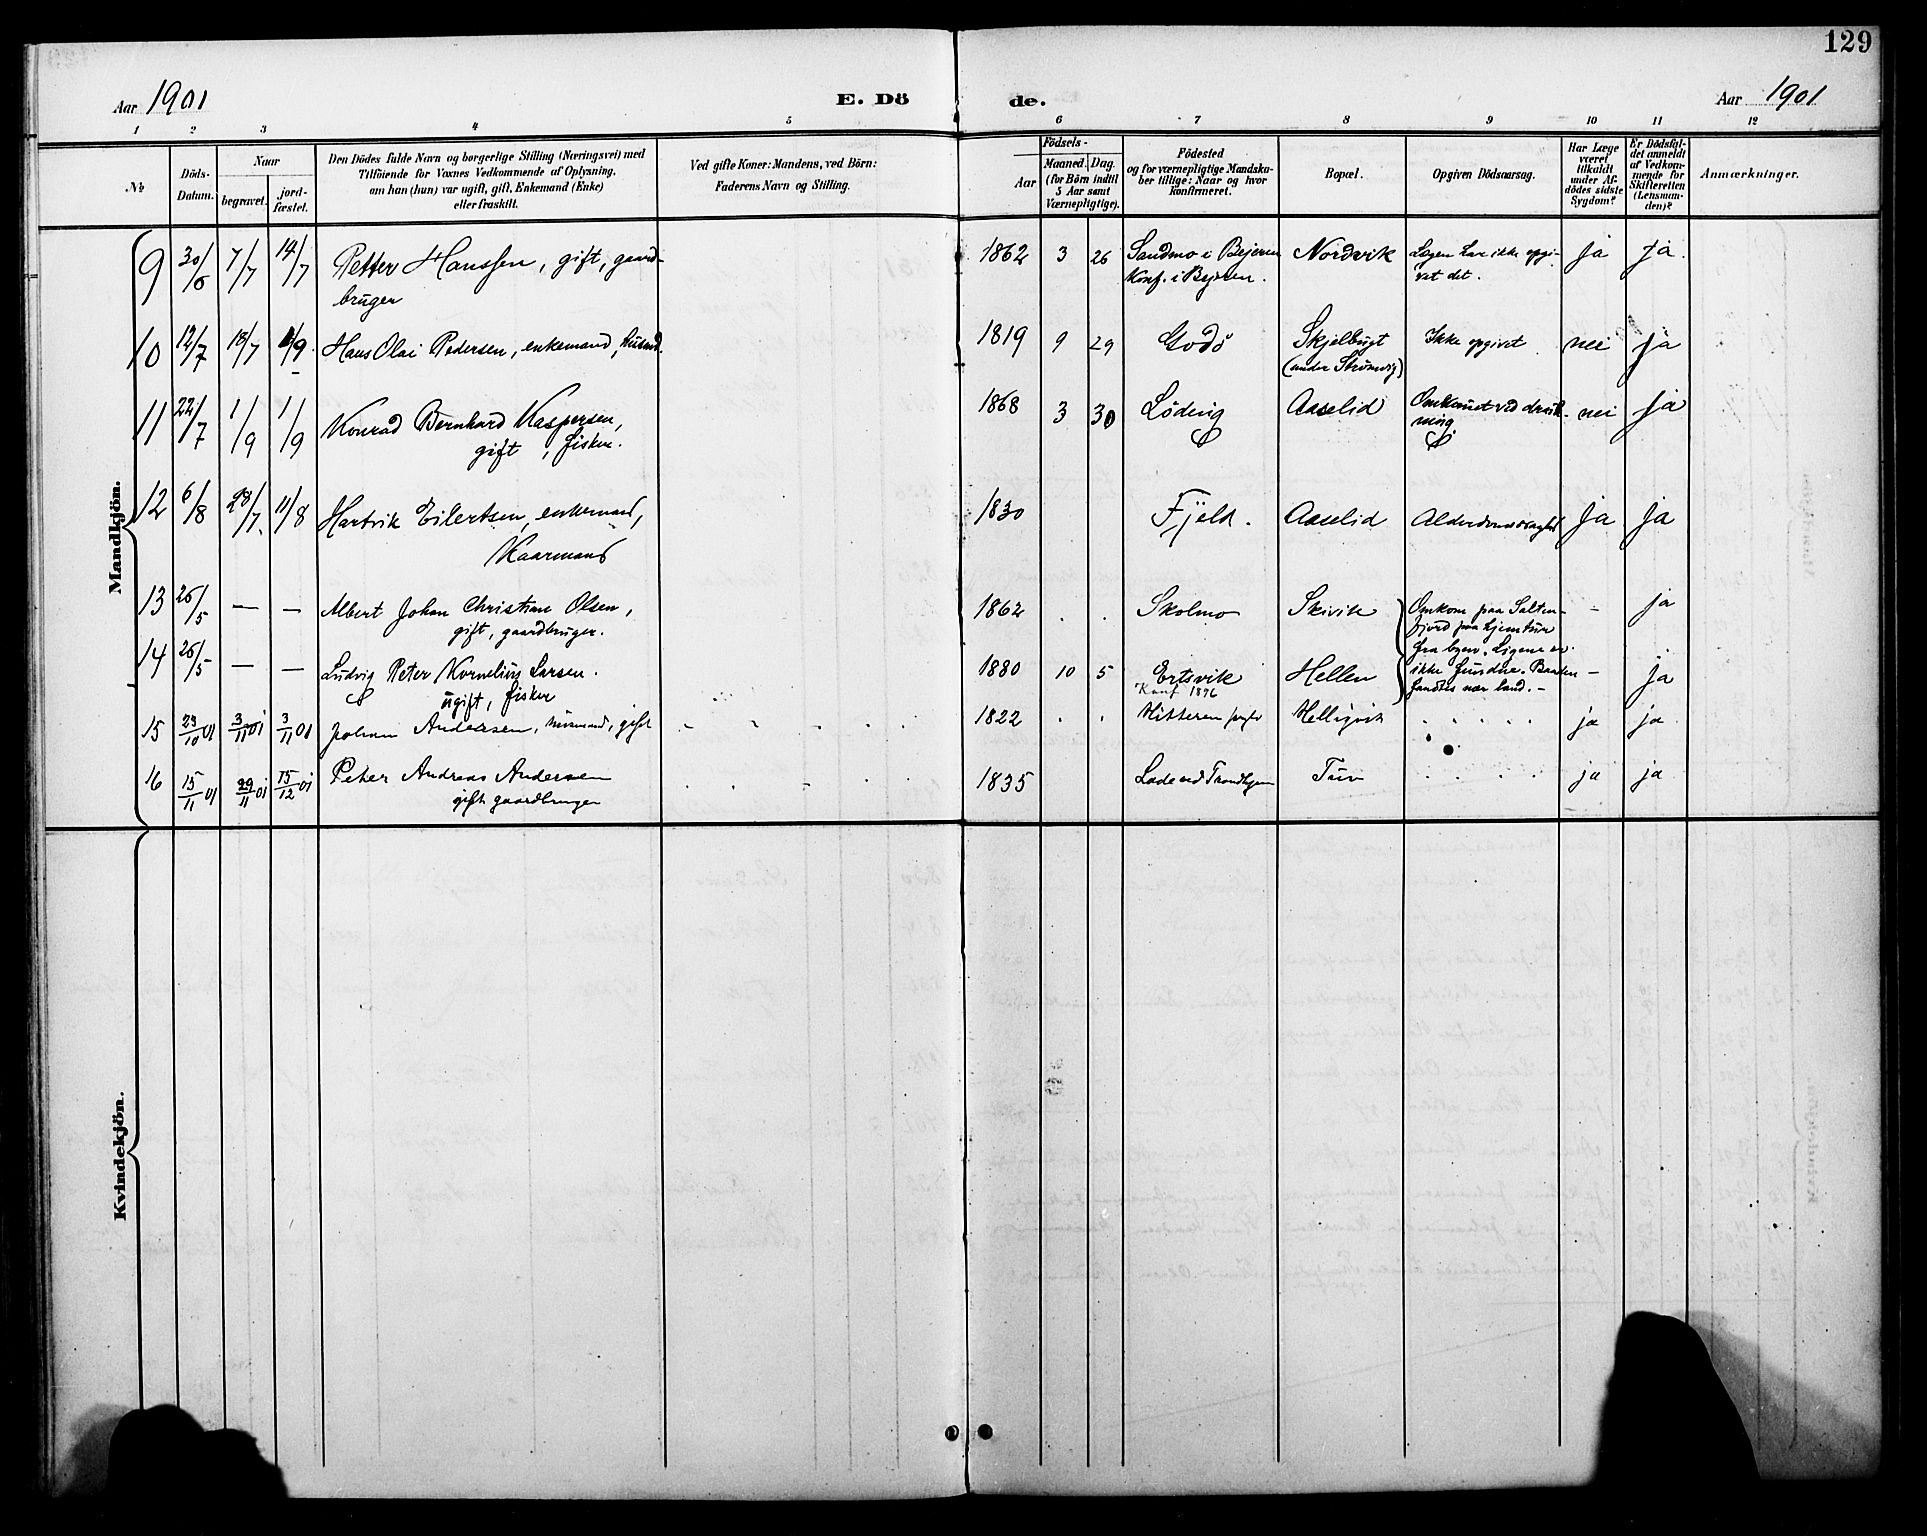 129
Aar 1901 E. Dö de. Aar 1901
1 2 3 4 5 6 7 8 9 10 11 12
No
Döds-
Datum.
Naar
begravet.
jord-
fæstet.
Den Dödes fulde Navn og borgerlige Stilling (Næringsvei) med
Tilföiende for Voxnes Vedkommende af Oplysning,
om han (hun) var ugift, gift, Enkemand (Enke)
eller fraskilt.
Ved gifte Koner: Mandens, ved Börn:
Faderens Navn og Stilling.
Födsels-
Aar
Maaned. Dag.
(for Börn indtil
5 Aar samt
Værnepligtige).
Födested
og for værnepligtige Mandska-
ber tillige: Naar og hvor
konfirmeret.
Bopæl.
Opgiven Dödsaarsag.
Har Læge
været
tilkaldt
under Af-
dödes sidste
Sygdom?
Er Dödsfal-
det anmeldt
af Vedkom-
mende for
Skifteretten
(Lensman-
den)?
Anmærkninger.
Mandkjön.
9 30/6 7/7 14/7 Petter Hanssen, gift, gaard- 1862 3 26 Sandmo i Bejeren Nordvik Lægen har ikke opgi- ja ja.
bruger Konf. i Bejeren. vet det.
10 12/7 18/7 1/9 Hans Olai Pedersen, enkemand, husmd. 1819 9 29 Godö Skjelbugt Ikke opgivet nei ja
(under Strömsvig)
11 22/7 1/9 1/9 Konrad Bernhard Kaspersen, 1868 3 30 Löding Aaselid Omkommet ved drukk- nei ja
gift, fisker. ning.
12 6/8 28/7. 11/8 Hartvik Eilertsen, enkemand, 1830 Fjeld. Aaselid Alderdomssvaghed ja ja
Kaarmand
13 26/5 — — Albert Johan Christian Olsen, 1862 . . Skolmo Skivik Omkom paa Salten- – ja
gift, gaardbruger. fjord paa hjemtur
fra byen. Ligene er
14 26/5 — — Ludvig Peter Kornelius Larsen. 1880 10 5 Ertsvik Hellen ikke fundne. Baaden – ja
ugift, fisker Konf 1896 fandtes nær land. –
15 29/10 01 3/11 01 3/11 01 Johan Andersen, husmand, gift 1822 . . Hitteren Helligvik ja ja
16 15/11 01 29/11 01 15/12 01 Peter Andreas Andersen 1835 Lade ved Trondhjem Tuv ja ja
gift gaardbruger
Kvindekjön.